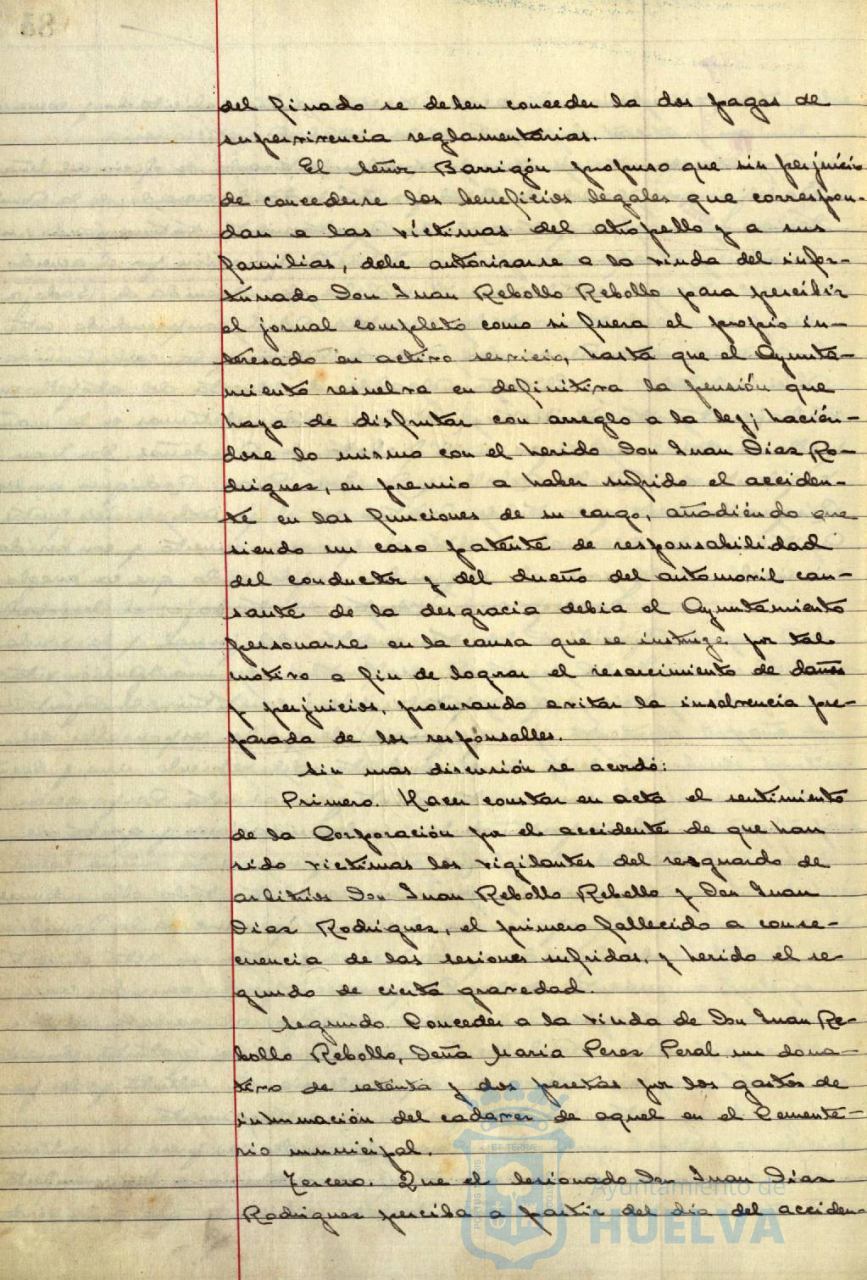 del finado se deben conceder la dos pagas de
supervivencia reglamentarias.
El señor Barrigón propuso que sin perjuicio
de concederse los beneficios legales que correspon-
dan a las víctimas del atropello y a sus
familias, debe autorizarse a la viuda del infor-
tunado Don Juan Rebollo Rebollo para percibir
el jornal completo como si fuera el propio in-
teresado en activo servicio, hasta que el Ayunta-
miento resuelva en definitiva la pensión que
haya de disfrutar con arreglo a la ley; hacién-
dose lo mismo con el herido Don Juan Díaz Ro-
driguez, en premio a haber sufrido el acciden-
te en las funciones de su cargo, añadiendo que
siendo un caso patente de responsabilidad
del conductor y del dueño del automovil cau-
sante de la desgracia debia el Ayuntamiento
personarse en la causa que se instruye por tal
motivo a fin de lograr el resarcimiento de daños
y perjuicios, procurando avitar la insolvencia pre-
parada de los responsables.
Sin mas discusión se acordó:
Primero. Hacer constar en acta el sentimiento
de la Corporación por el accidente de que han
sido victimas los vigilantes del resguardo de
arbitrios Don Juan Rebollo Rebollo y Don Juan
Diaz Rodriguez, el primero fallecido a conse-
cuencia de las lesiones sufridas, y herido el se-
gundo de cierta gravedad.
Segundo. Conceder a la viuda de Don Juan Re-
bollo Rebollo, Doña María Perez Peral un dona-
tivo de setenta y dos pesetas por los gastos de
inhumación del cadaver de aquel en el Cemente-
rio municipal.
Tercero. Que el lesionado Don Juan Díaz
Rodriguez perciba a partir del día del acciden-
Ayuntamiento de
HUELVA